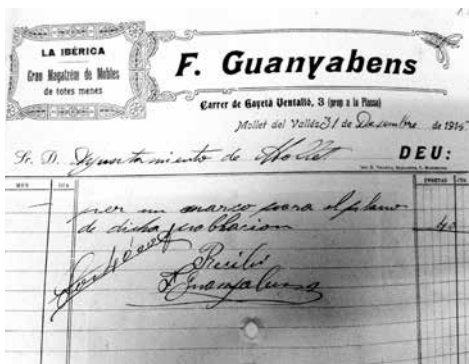 LA IBÉRICA
Gran Magatzém de Mobles
de totes menes
F. Guanyabens
Carrer de Gayetá Ventalló, 3 (prop a la Plassa)
Mollet del Vallés 31 de Desembre de 191
Sr. D. Ayuntamiento de Mollet DEU:
MES DIA PESETAS CTS.
per un marco para el plano
de dicha poblacion 40
Recibi
F. Guanyabens